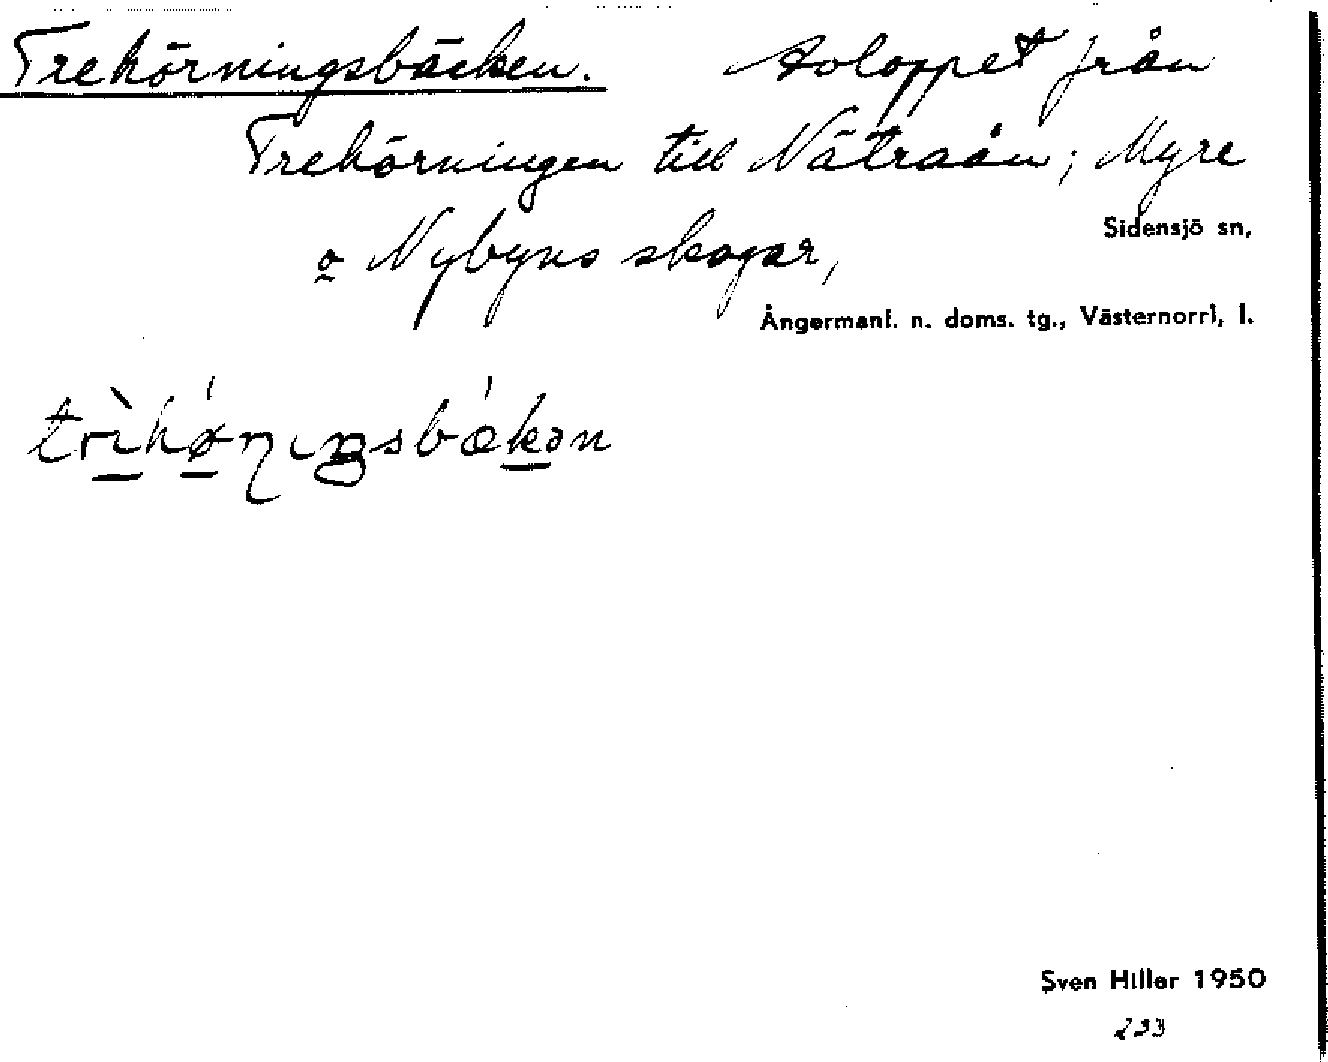 Trehörningsbäcken. Avloppet från
Trehörningen till Nätraån; Myre
Sidensjö sn,
o Nybyns skogar,
Ångermanl. n. doms. tg., Västernorrl, l.
Sven Hiller 1950
233